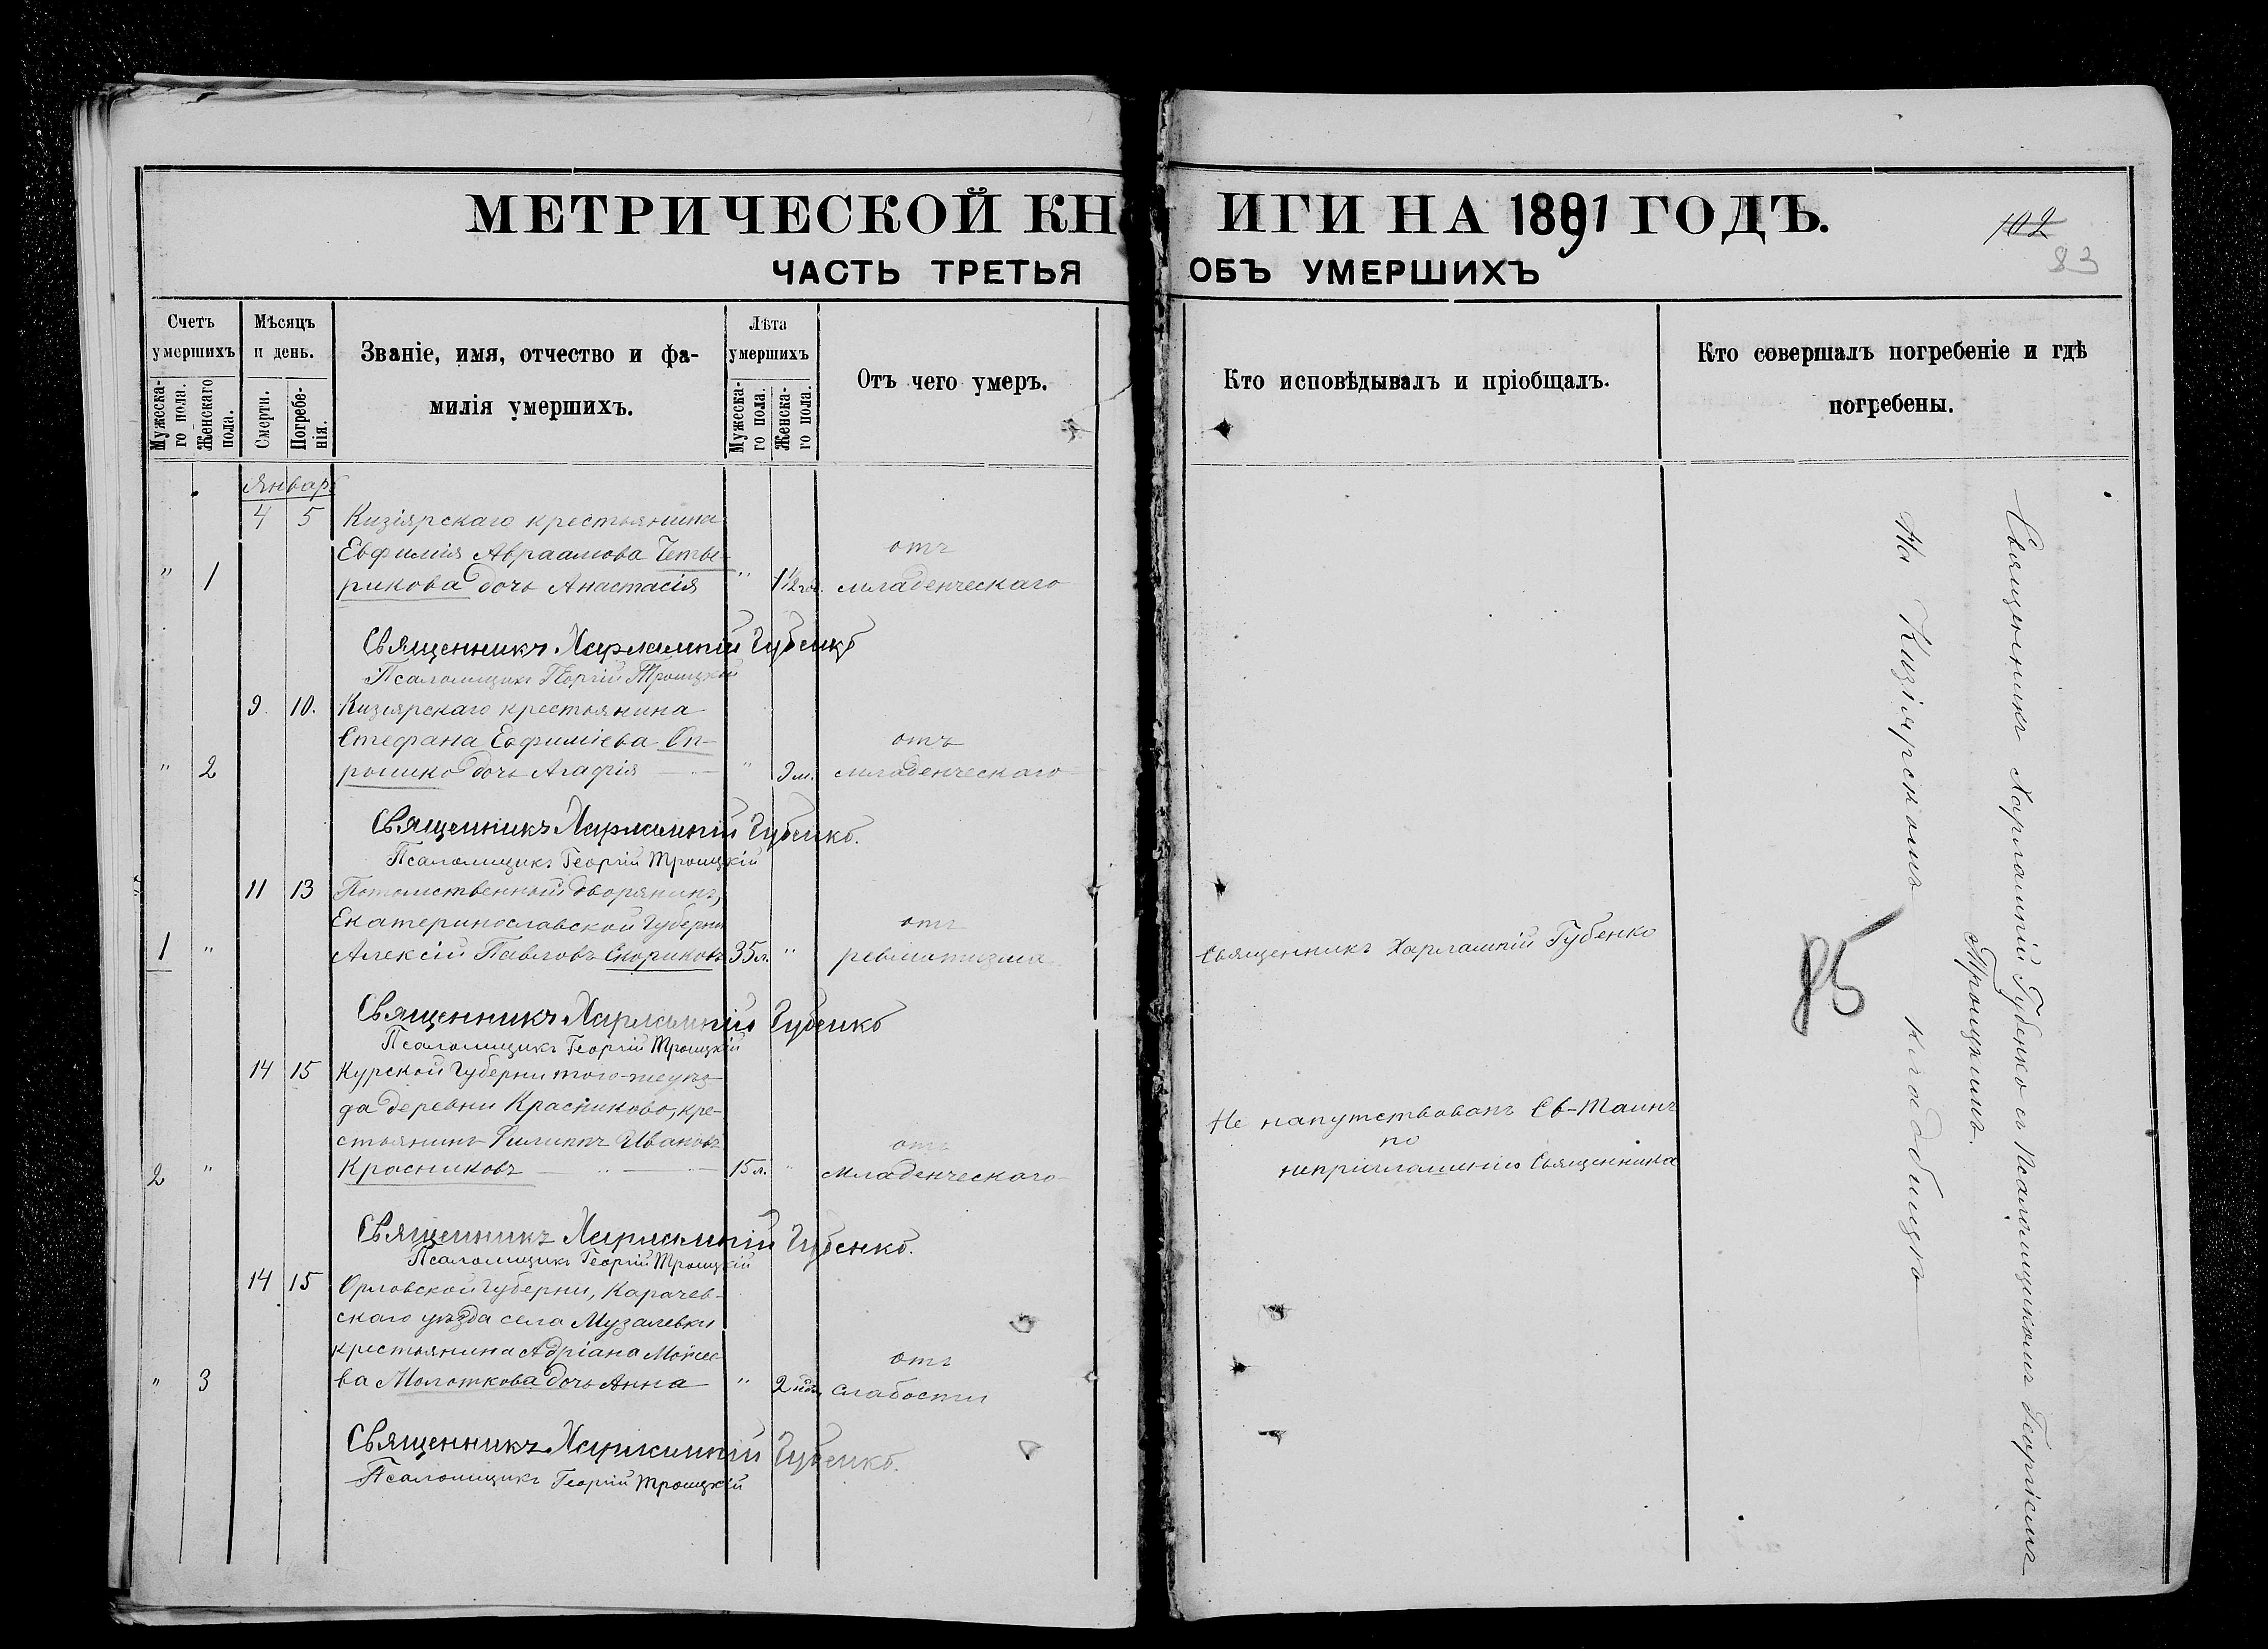 МЕТРИЧЕСКОЙ КНИГИ НА 1891 ГОДЪ.
102
83
ЧАСТЬ ТРЕТЬЯ ОБЪ УМЕРШИХЪ
Счетъ умершихъ
Мужескаго пола.
Женскаго пола.
Мѣсяцъ и день.
Смерти.
Погребенія.
Званіе, имя, отчество и фа-
милія умершихъ.
Лѣта умершихъ
Мужескаго пола.
Женскаго пола.
Отъ чего умеръ.
Кто исповѣдывалъ и пріобщалъ.
Кто совершалъ погребеніе и гдѣ
погребены.
Январь
4 5 Кизіярскаго крестьянина
Евфимія Авраамова Четве- отъ
" 1 рикова дочь Анастасія " 1½ год. младенческаго
Священникъ Харлампій Губенко
Псаломщикъ Георгій Троицкій
9. 10. Кизіярскаго крестьянина
Стефана Евфиміева Оп- отъ
" 2 рышко дочь Агафія " 9 м. младенческаго
Священникъ Харлампій Губенко.
Псаломщикъ Георгій Троицкій
11 13 Потомственный дворянинъ,
Екатеринославской Губерни отъ
1 " Алексій Павловъ Скориковъ 35 л. " ревматизма Священникъ Харлампій Губенко
Священникъ Харлампій Губенко
Псаломщикъ Георгій Троицкій
14 15 Курской Губерни того-же уѣз-
да деревни Красниково, кре- Не напутствованъ Св-Таинъ
стьянинъ Филиппъ Ивановъ отъ по
2 " Красниковъ 15 л. " младенческаго неприглашенію Священника
Священникъ Харлампій Губенко.
Псаломщикъ Георгій Троицкій
14 15 Орловской Губерни, Карачев-
скаго уѣзда села Музалевки
крестьянина Адріана Моисее- отъ
" 3 ва Молоткова дочь Анна " 2 нед. слабости
Священникъ Харлампій Губенко.
Псаломщикъ Георгій Троицкій
Священникъ Харлампій Губенко съ Псаломщикомъ Георгіемъ
Троицкимъ.
На Кизіярскомъ кладбищѣ
85